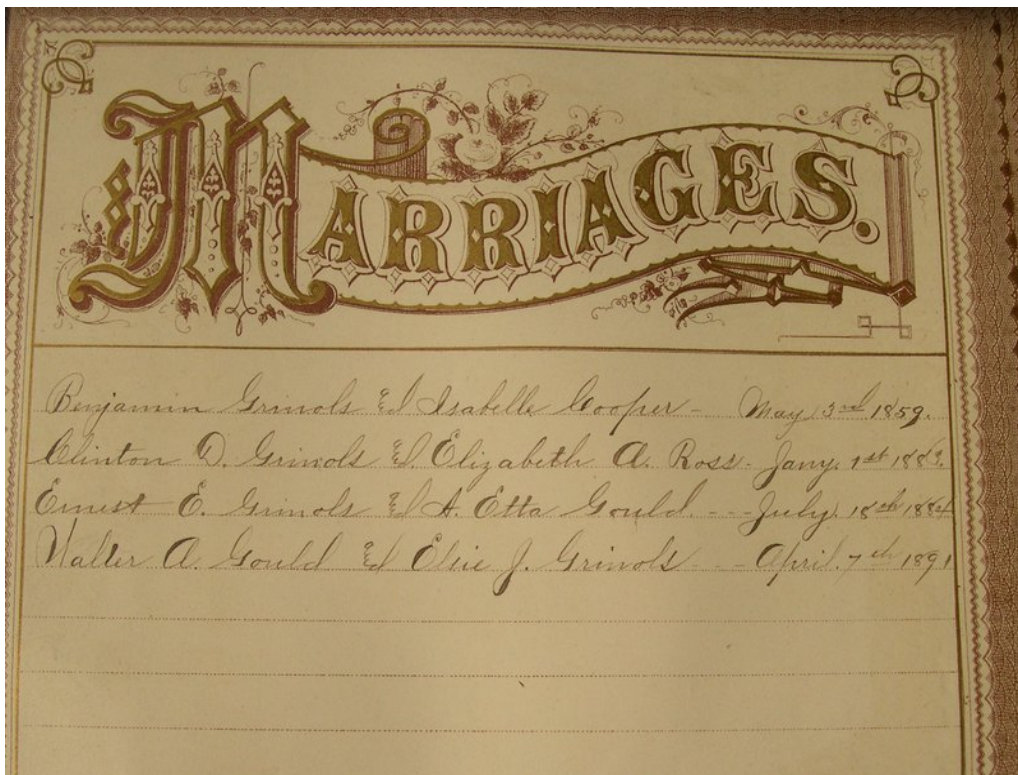 MARRIAGES.
Benjamin Grinols & Isabelle Cooper - May 3rd 1859.
Clinton D. Grinols & Elizabeth A. Ross - Jany. 1st 1883.
Ernest E. Grinols & A. Etta Gould - - - July 18th 1884
Walter A. Gould & Elsie J. Grinols - - - April 7th 1891